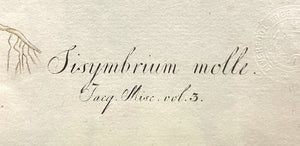 Sisymbrium molle.
Jacq. Misc. vol. 3.